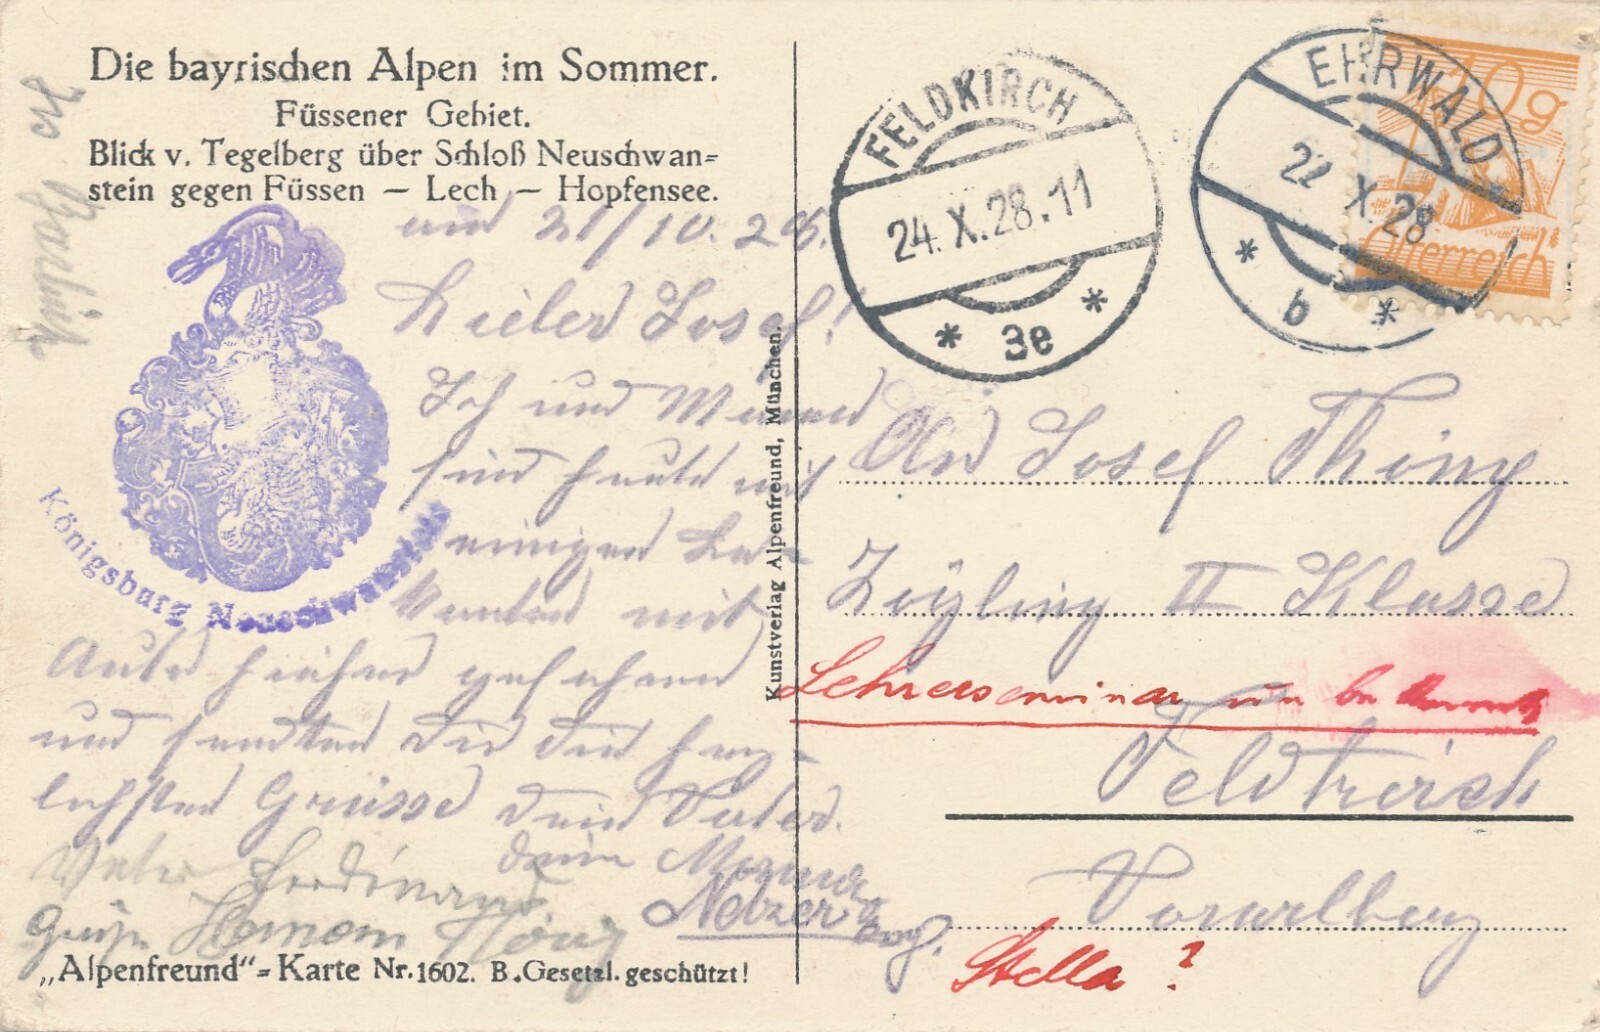 Die bayrischen Alpen im Sommer.
Füssener Gebiet.
Blick v. Tegelberg über Schloß Neuschwan=
stein gegen Füssen – Lech – Hopfensee.
21/10. 28.
Lieber Josef!
Ich und
sind heute mit
einigen Be-
kannten mit
Auto hieher gefahren
und senden dir die herz-
lichsten Grüsse dein Vater.
deine
Vater Ferdinand
Netzer
Grüße Hermann
Königsburg Neuschwanstein
„Alpenfreund"=Karte Nr. 1602. B. Gesetzl. geschützt!
Kunstverlag Alpenfreund, München.
FELDKIRCH
24. X. 28. 11
* 3e *
EHRWALD
22 X. 28
* b *
10 g
Österreich
An Josef
Zögling II Klasse
Lehrerseminar
Feldkirch
Vorarlberg
Stella?